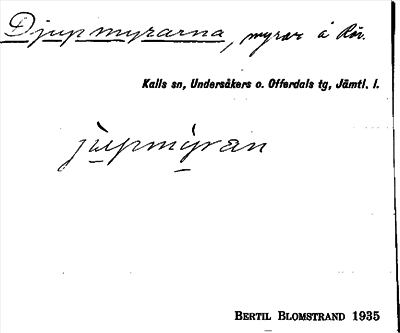 Djupmyrarna, myrar å Röv.
Kalls sn, Undersåkers o. Offerdals tg, Jämtl. l.
jupmyran
BERTIL BLOMSTRAND 1935